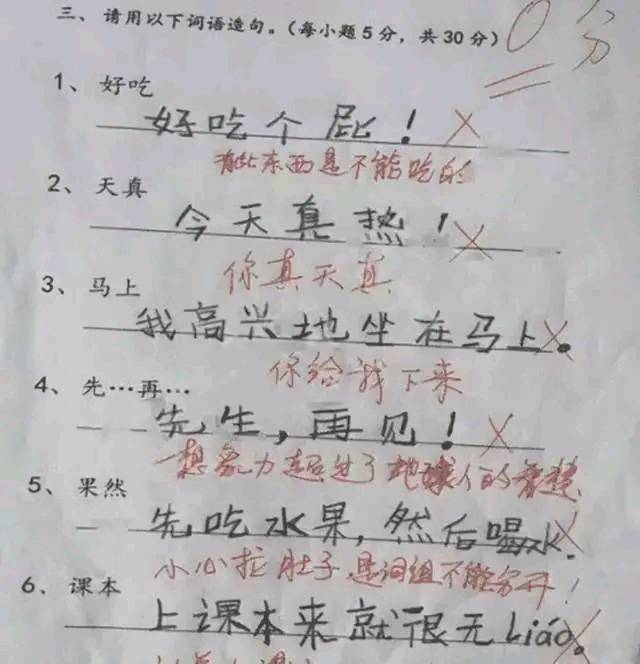 三、请用以下词语造句。(每小题5分，共30分) 0分
1、好吃
好吃个屁！ X
有些东西是不能吃的
2、天真
今天真热！ X
你真天真
3、马上
我高兴地坐在马上。 X
你给我下来
4、先…再…
先生，再见！ X
想象力超过了地球人的智慧
5、果然
先吃水果，然后喝水. X
小心拉肚子，是词组不能分开！
6、课本
上课本来就很无liáo。 X